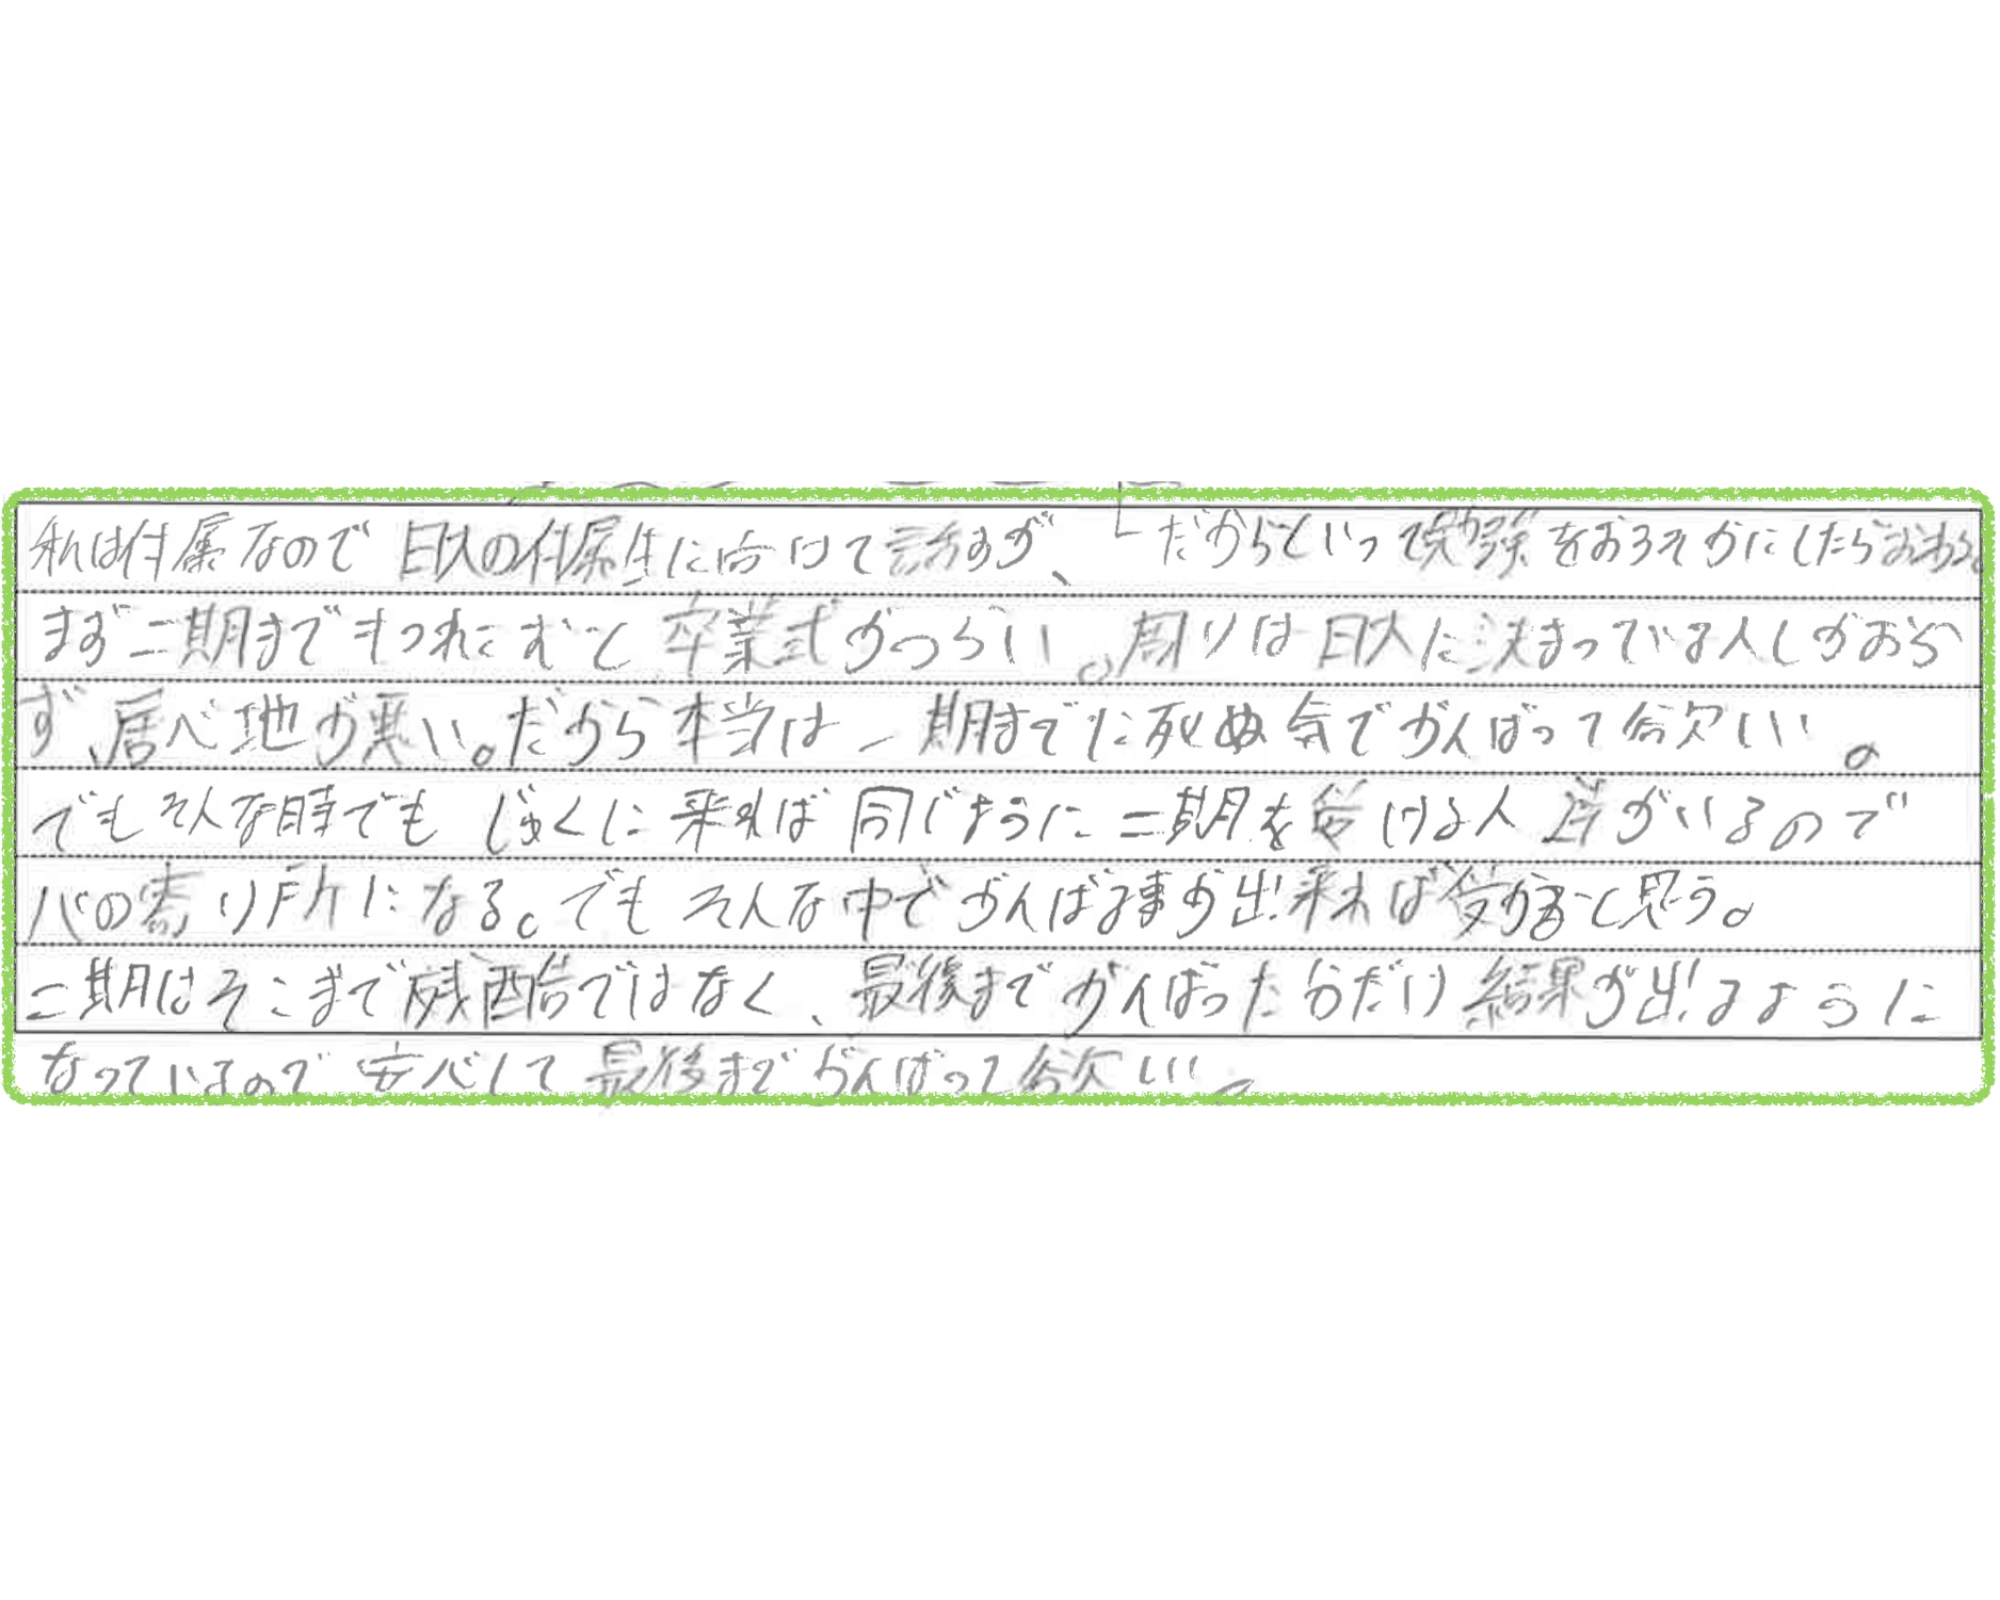 私は付属なので日大の付属生に向けて話すが、「だからといって勉強をおろそかにしたらおわる
まず二期までもつれこむと卒業式がつらい。周りは日大に決まっている人しかおら
ず、居べ地が悪い。だから本当は一期までに死ぬ気でがんばって欲しい。
でもそんな時でもじゅくに来れば同じように二期を受ける人達がいるので
心の寄り所になる。でもそんな中でがんばる事が出来れば受かると思う。
二期はそこまで残酷ではなく、最後までがんばった分だけ結果が出るように
なっているので安心して最後までがんばって欲しい。